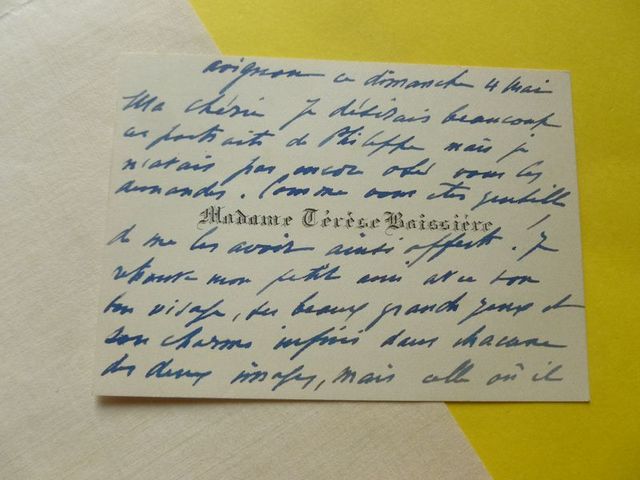 avignon ce dimanche 4 mai
Ma chérie je désirais beaucoup
ces portraits de Philippe mais je
n'avais pas encore osé vous les
demander. Comme vous êtes gentille
Madame Térèse Boissière
de me les avoir ainsi offerts! Je
retrouve mon petit ami avec son
bon visage, ses beaux grands yeux et
son charme infini dans chacune
des deux images, mais celle où il